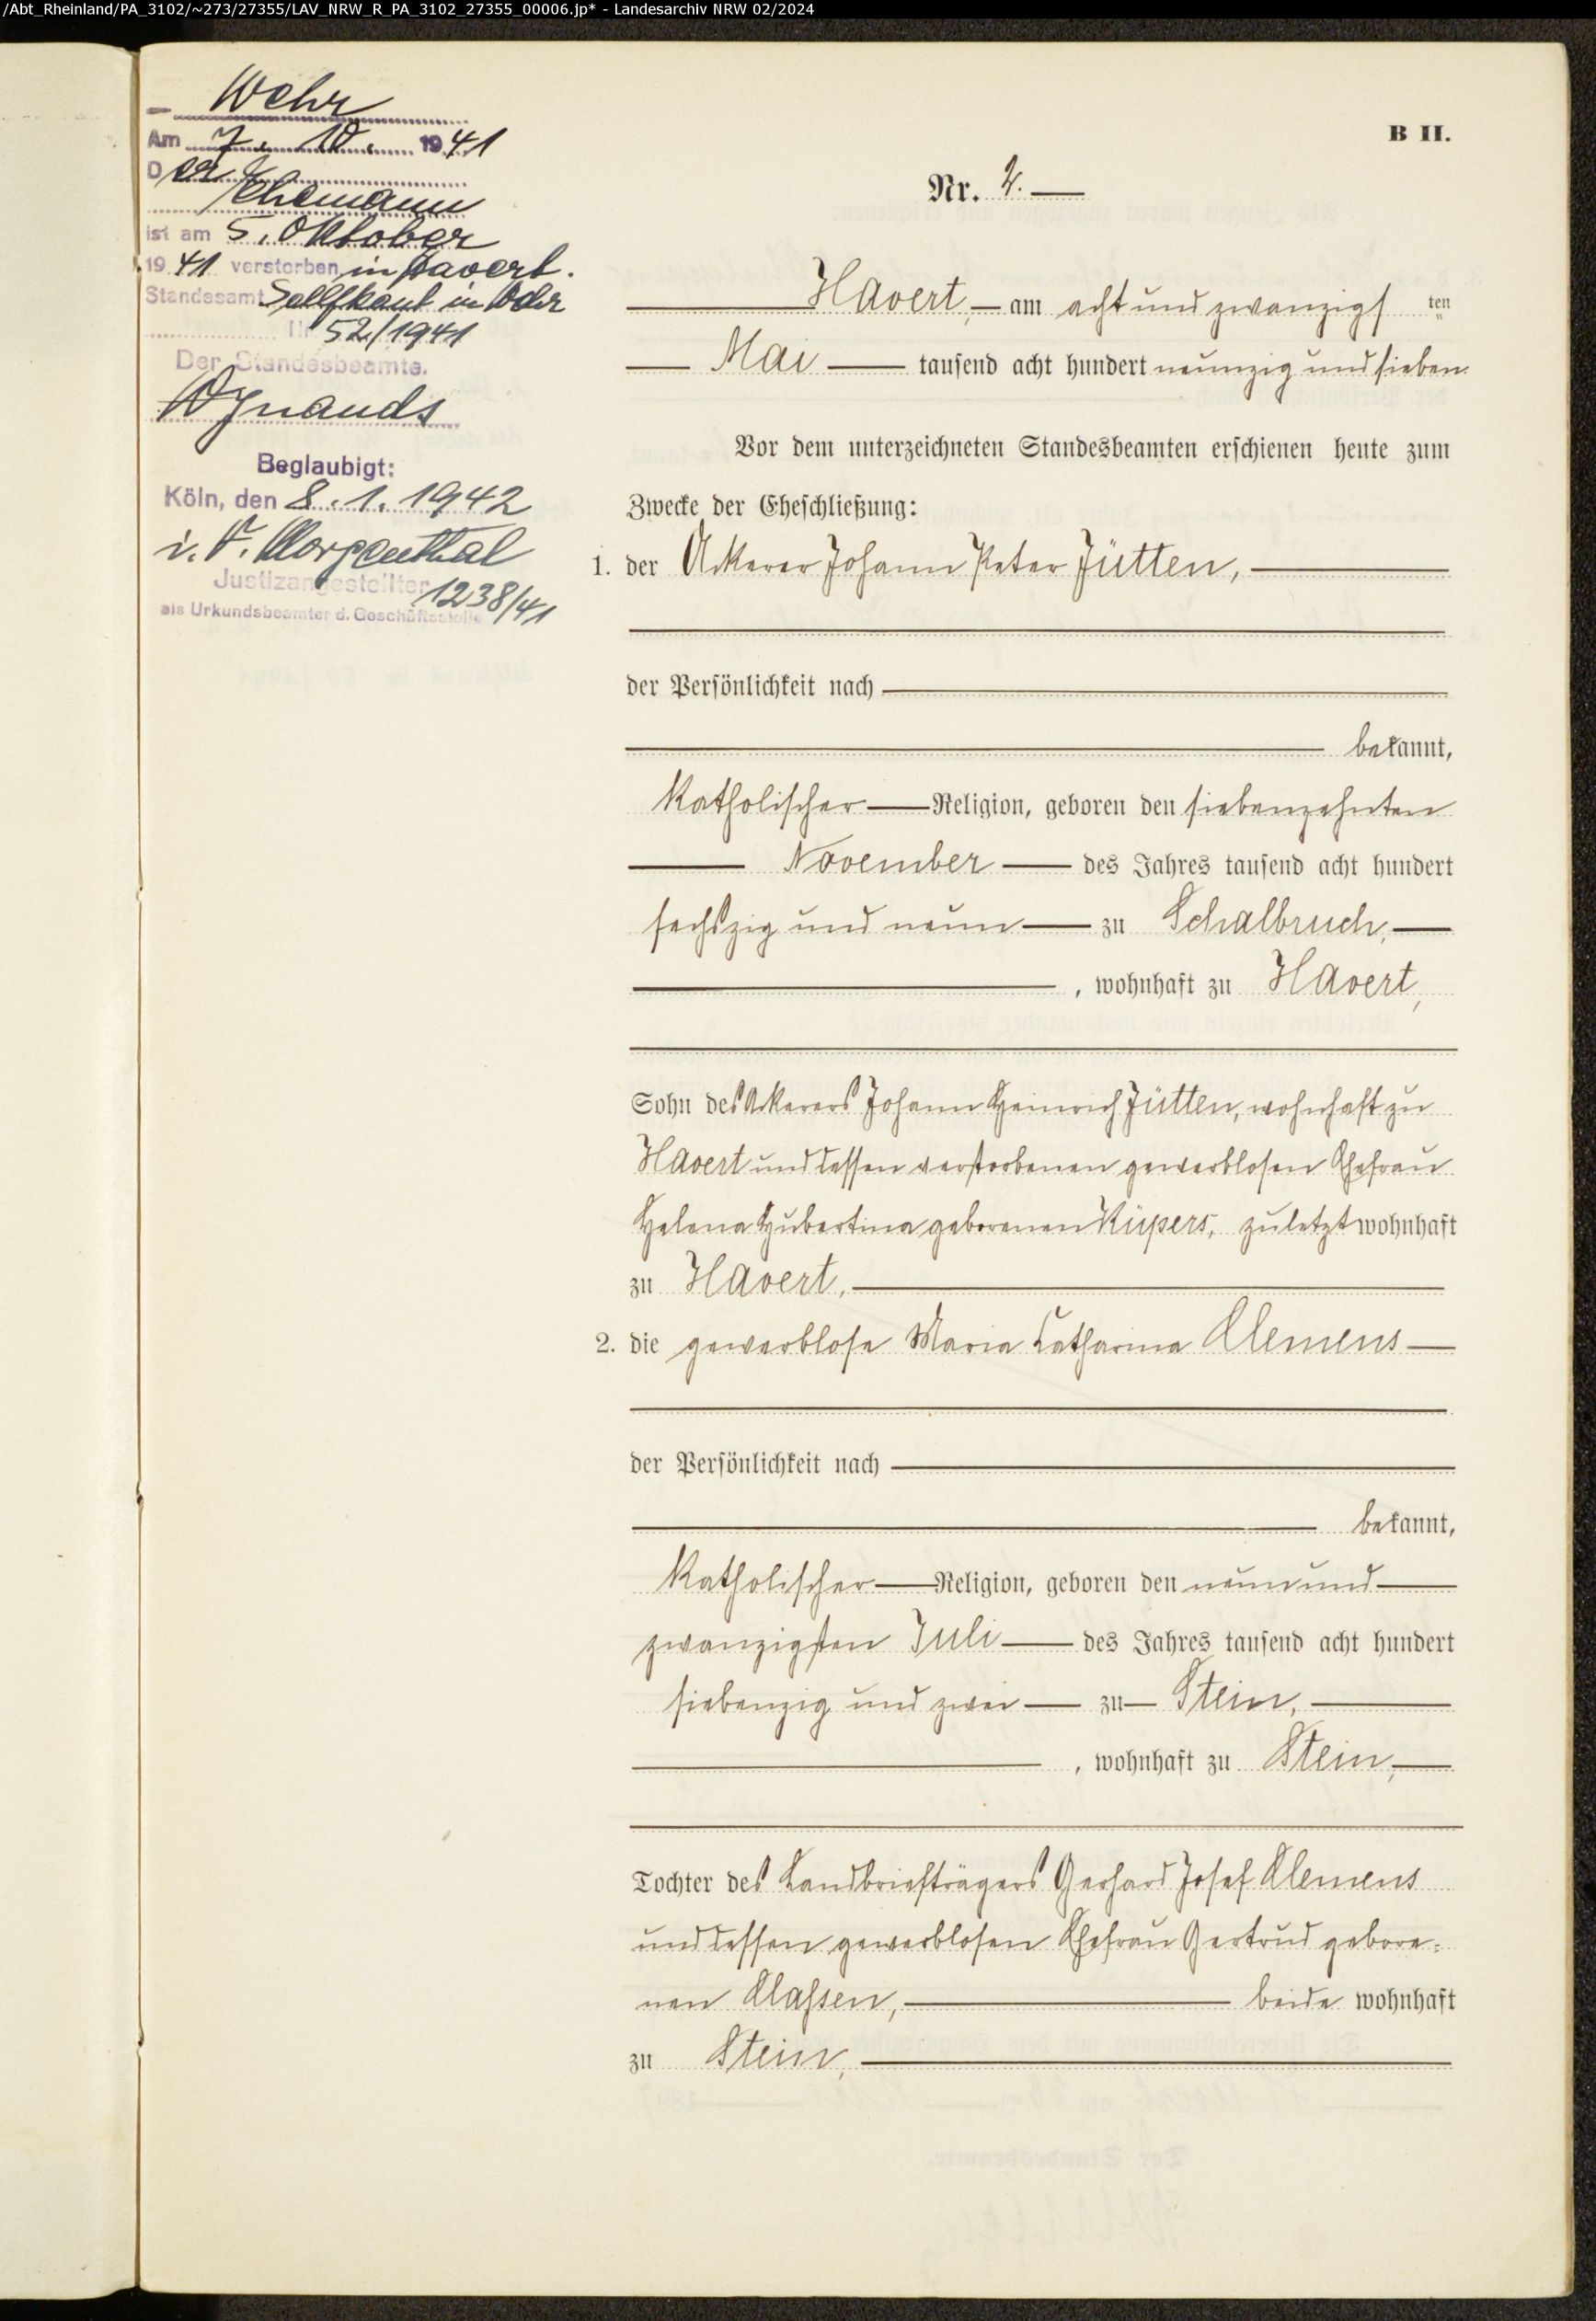 /Abt_Rheinland/PA_3102/~273/27355/LAV_NRW_R_PA_3102_27355_00006.jp* - Landesarchiv NRW 02/2024
Wehr
Am 7. 10. 1941
Der
Ehemann
ist am 5. Oktober
1941 verstorben in Havert.
Standesamt Selfkant in Wehr
Nr 52/1941
Der Standesbeamte.
Wynands
Beglaubigt:
Köln, den 8.1.1942
i. V. Morgenthal
Justizangestellter 1238/41
als Urkundsbeamter d. Geschäftsstelle
B II.
Nr.
Havert, am acht und zwanzigs ten
Mai tausend acht hundert neunzig und sieben
Vor dem unterzeichneten Standesbeamten erschienen heute zum
Zwecke der Eheschließung:
1. der Ackerer Johann Peter Jütten,
der Persönlichkeit nach
bekannt,
katholischer Religion, geboren den siebenzehnten
November des Jahres tausend acht hundert
sechszig und neun zu Schalbruch,
, wohnhaft zu Havert,
Sohn des Ackerers Johann Heinrich Jütten, wohnhaft zu
Havert und dessen verstorbenen gewerblosen Ehefrau
Helena Hubertina geborenen Küpers, zuletzt wohnhaft
zu Havert,
2. die gewerblose Maria Catharina Clemens
der Persönlichkeit nach
bekannt,
katholischer Religion, geboren den neun und
zwanzigsten Juli des Jahres tausend acht hundert
siebenzig und zwei zu Stein,
, wohnhaft zu Stein,
Tochter des Landbriefträgers Gerhard Josef Clemens
und dessen gewerblosen Ehefrau Gertrud gebore-
nen Claßen, beide wohnhaft
zu Stein,